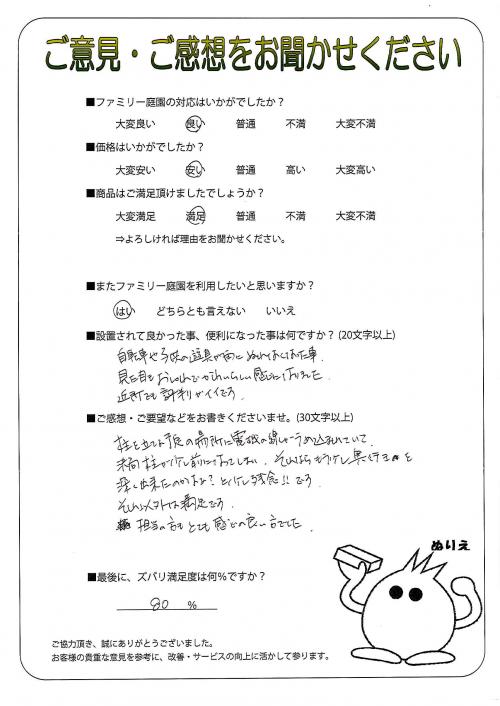 ご意見・ご感想をお聞かせください
■ファミリー庭園の対応はいかがでしたか？
大変良い 良い 普通 不満 大変不満
■価格はいかがでしたか？
大変安い 安い 普通 高い 大変高い
■商品はご満足頂けましたでしょうか？
大変満足 満足 普通 不満 大変不満
⇒よろしければ理由をお聞かせください。
■またファミリー庭園を利用したいと思いますか？
はい どちらとも言えない いいえ
■設置されて良かった事、便利になった事は何ですか？(20文字以上)
自転車や子供の道具が雨にぬれなくなった事、
見た目もおしゃれでかわいらしい感じになりました
近所でも評判がイイです
■ご感想・ご要望などをお書きくださいませ。(30文字以上)
柱を立てる予定の場所に電磁の線がうめ込まれていて、
柱が少し前になってしまい、それならもう少し奥行き を
出来たのかな？と少し残念!!です
それ以外は満足です
担当の方もとても感じの良い方でした
ぬりえ
■最後に、ズバリ満足度は何％ですか？
80 ％
ご協力頂き、誠にありがとうございました。
お客様の貴重な意見を参考に、改善・サービスの向上に活かして参ります。